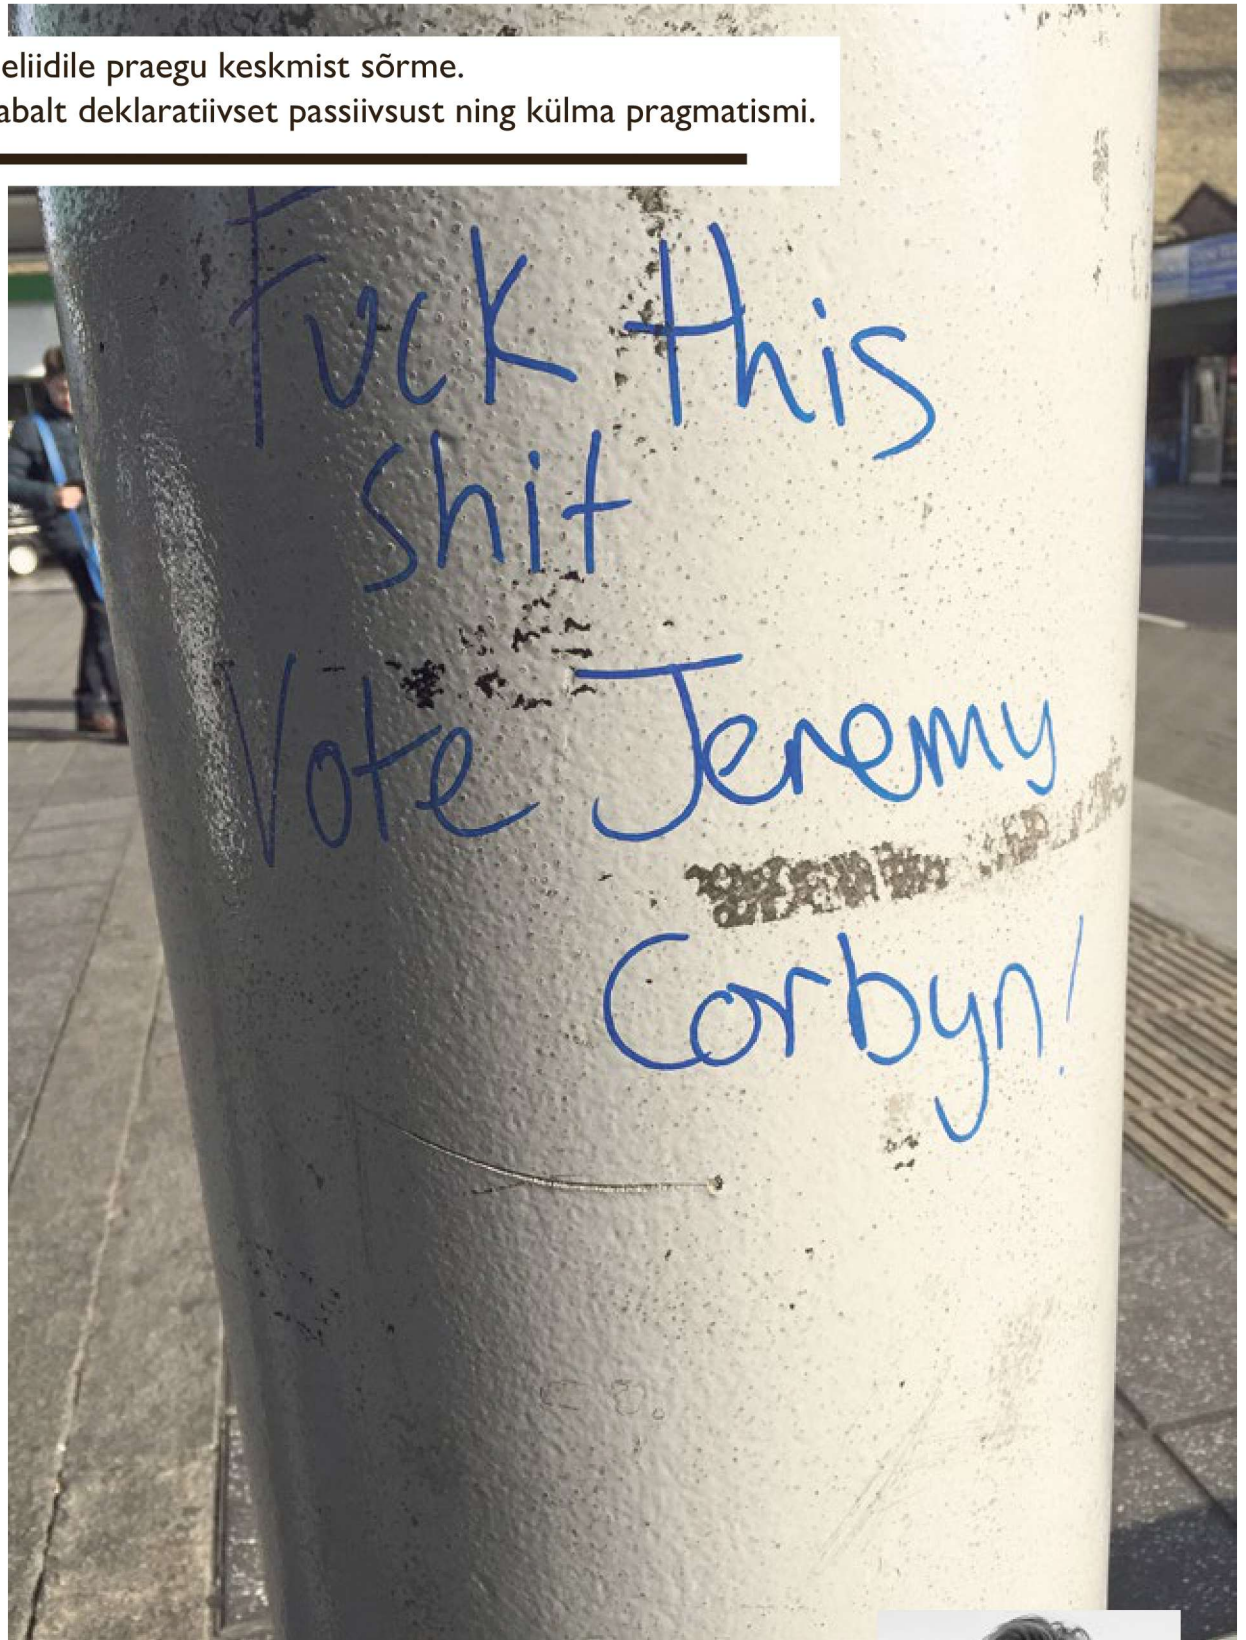 eliidile praegu keskmist sõrme.
abalt deklaratiivset passiivsust ning külma pragmatismi.
Fuck this
shit
Vote Jeremy
Corbyn!